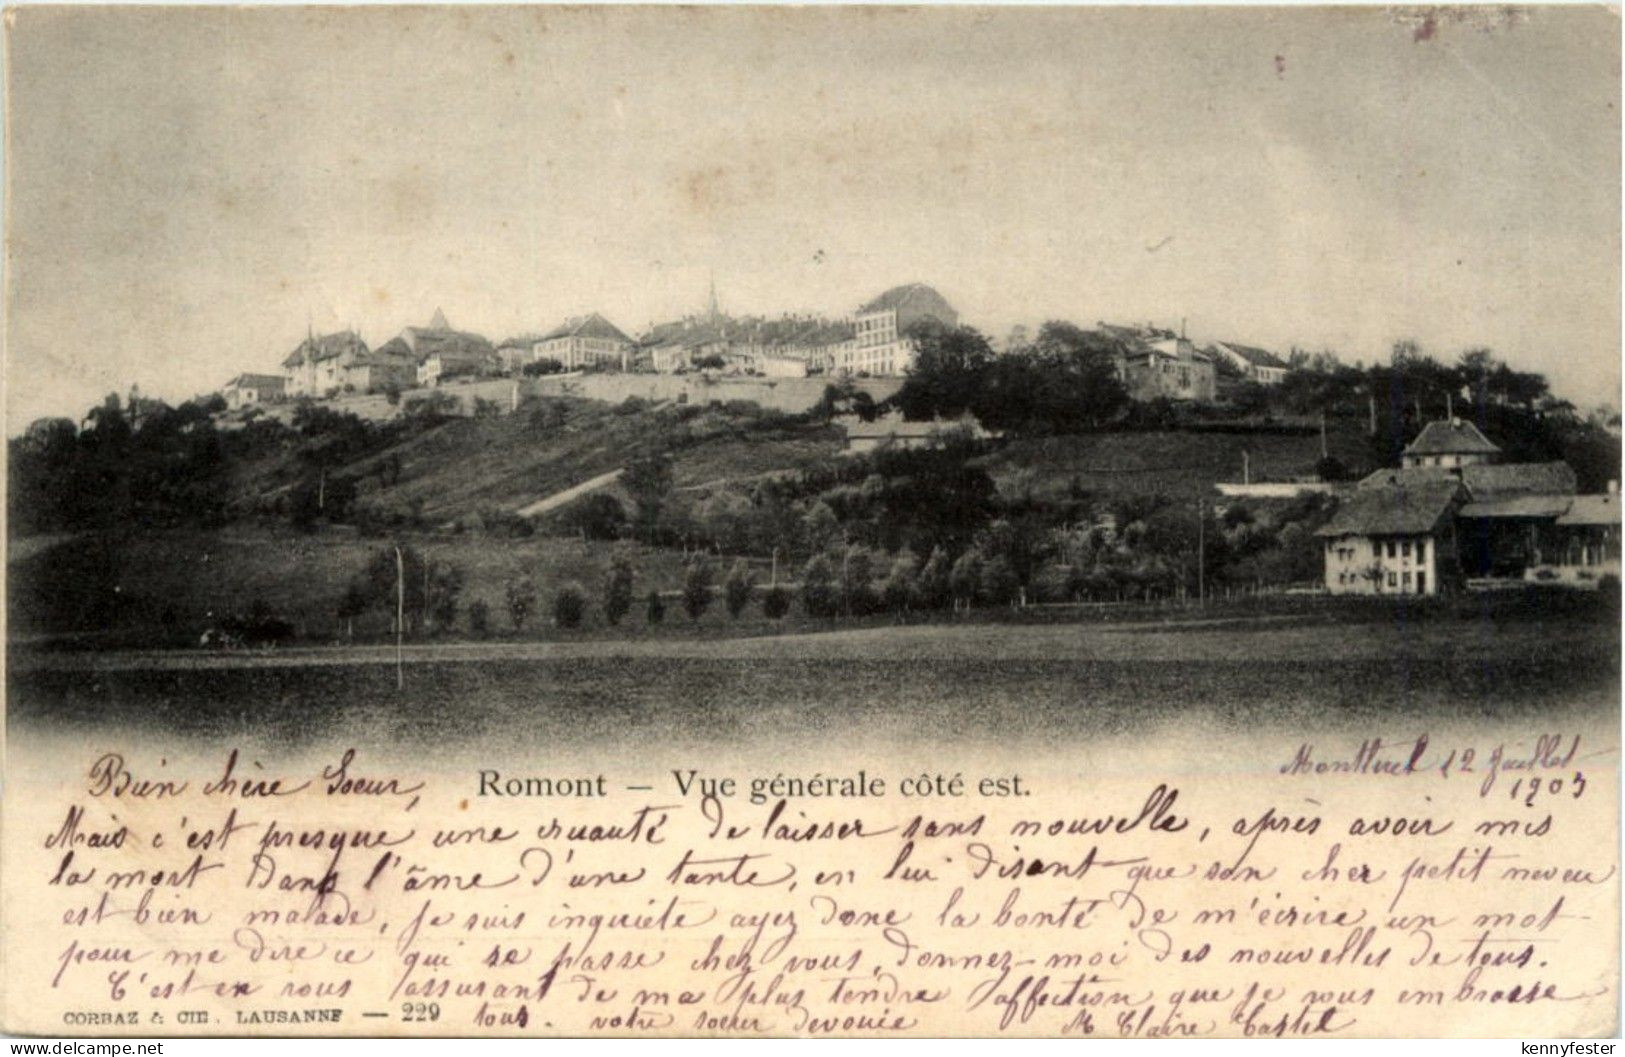 Montlluel 12 Juillet
1903
Bien chère Soeur,
Romont — Vue générale côté est.
Mais c'est presque une cruauté de laisser sans nouvelle, après avoir mis
la mort dans l'âme d'une tante, en lui disant que son cher petit neveu
est bien malade, je suis inquiète ayez donc la bonté de m'écrire un mot
pour me dire ce qui se passe chez vous, donnez-moi des nouvelles de tous.
C'est en vous assurant de ma plus tendre affection que je vous embrasse
tous. votre soeur dévouée M Claire Castel
CORBAZ & CIE. LAUSANNE — 229
delcampe.net
kennyfester